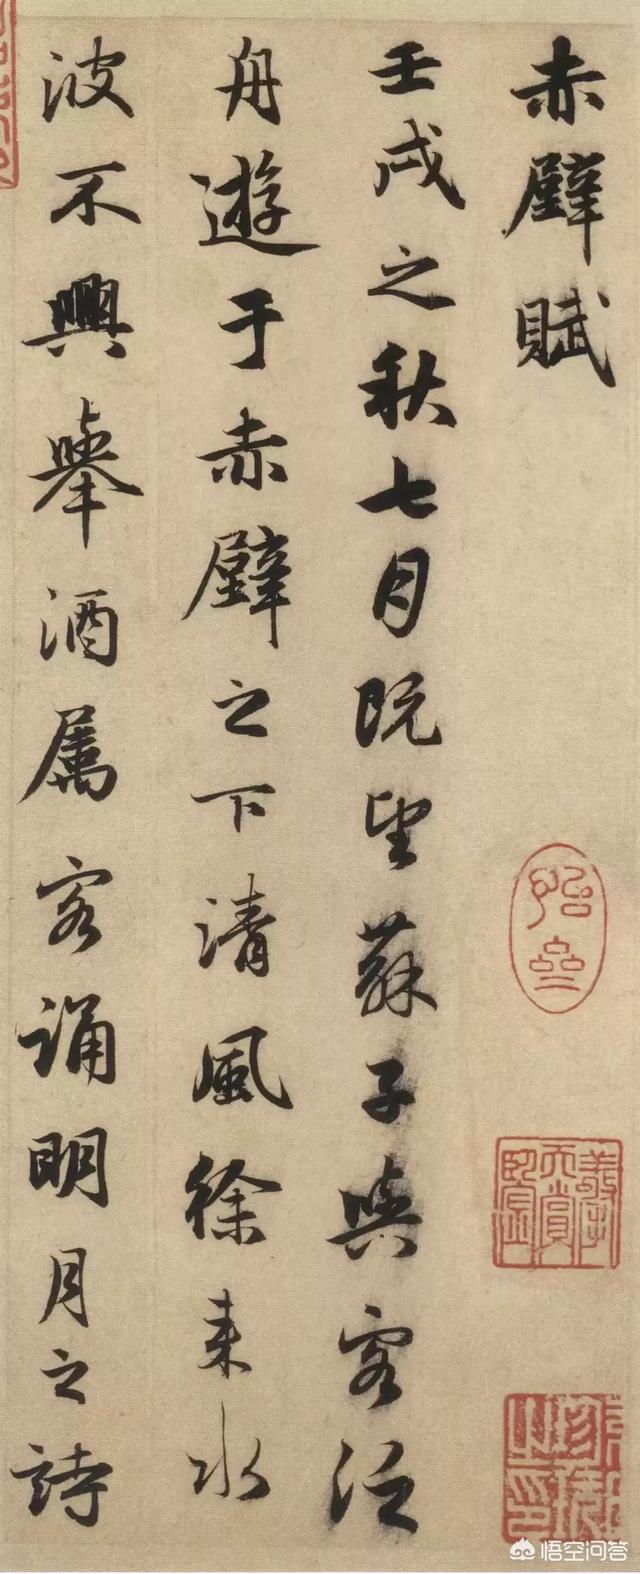 赤壁賦
壬戌之秋七月既望蘇子與客泛
舟遊于赤壁之下清風徐来水
波不興舉酒属客誦明月之詩
悟空问答